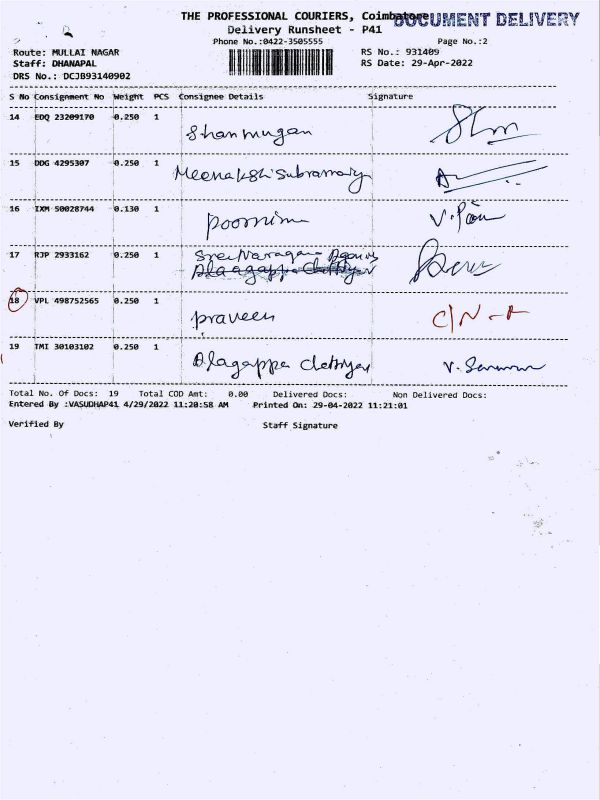 THE PROFESSIONAL COURIERS, Coimbatore
DOCUMENT DELIVERY
Delivery Runsheet - P41
Phone No.:0422-3505555
Page No.:2
Route: MULLAI NAGAR
RS No.: 931409
Staff: DHANAPAL
RS Date: 29-Apr-2022
DRS No.: DCJB93140902
S No Consignment No Weight PCS Consignee Details Signature
14 EDQ 23209170 0.250 1
Shanmugan
15 DDG 4295307 0.250 1
Meenakshi Subramaniy
16 IXM 50028744 0.130 1
poornima V.
17 RJP 2933162 0.250 1
Alagappa Chettiyar
18 VPL 498752565 0.250 1
praveen C/N-A
19 TMI 30103102 0.250 1
Alagappa Chettiyar V.
Total No. Of Docs: 19 Total COD Amt: 0.00 Delivered Docs: Non Delivered Docs:
Entered By :VASUDHAP41 4/29/2022 11:20:58 AM Printed On: 29-04-2022 11:21:01
Verified By Staff Signature